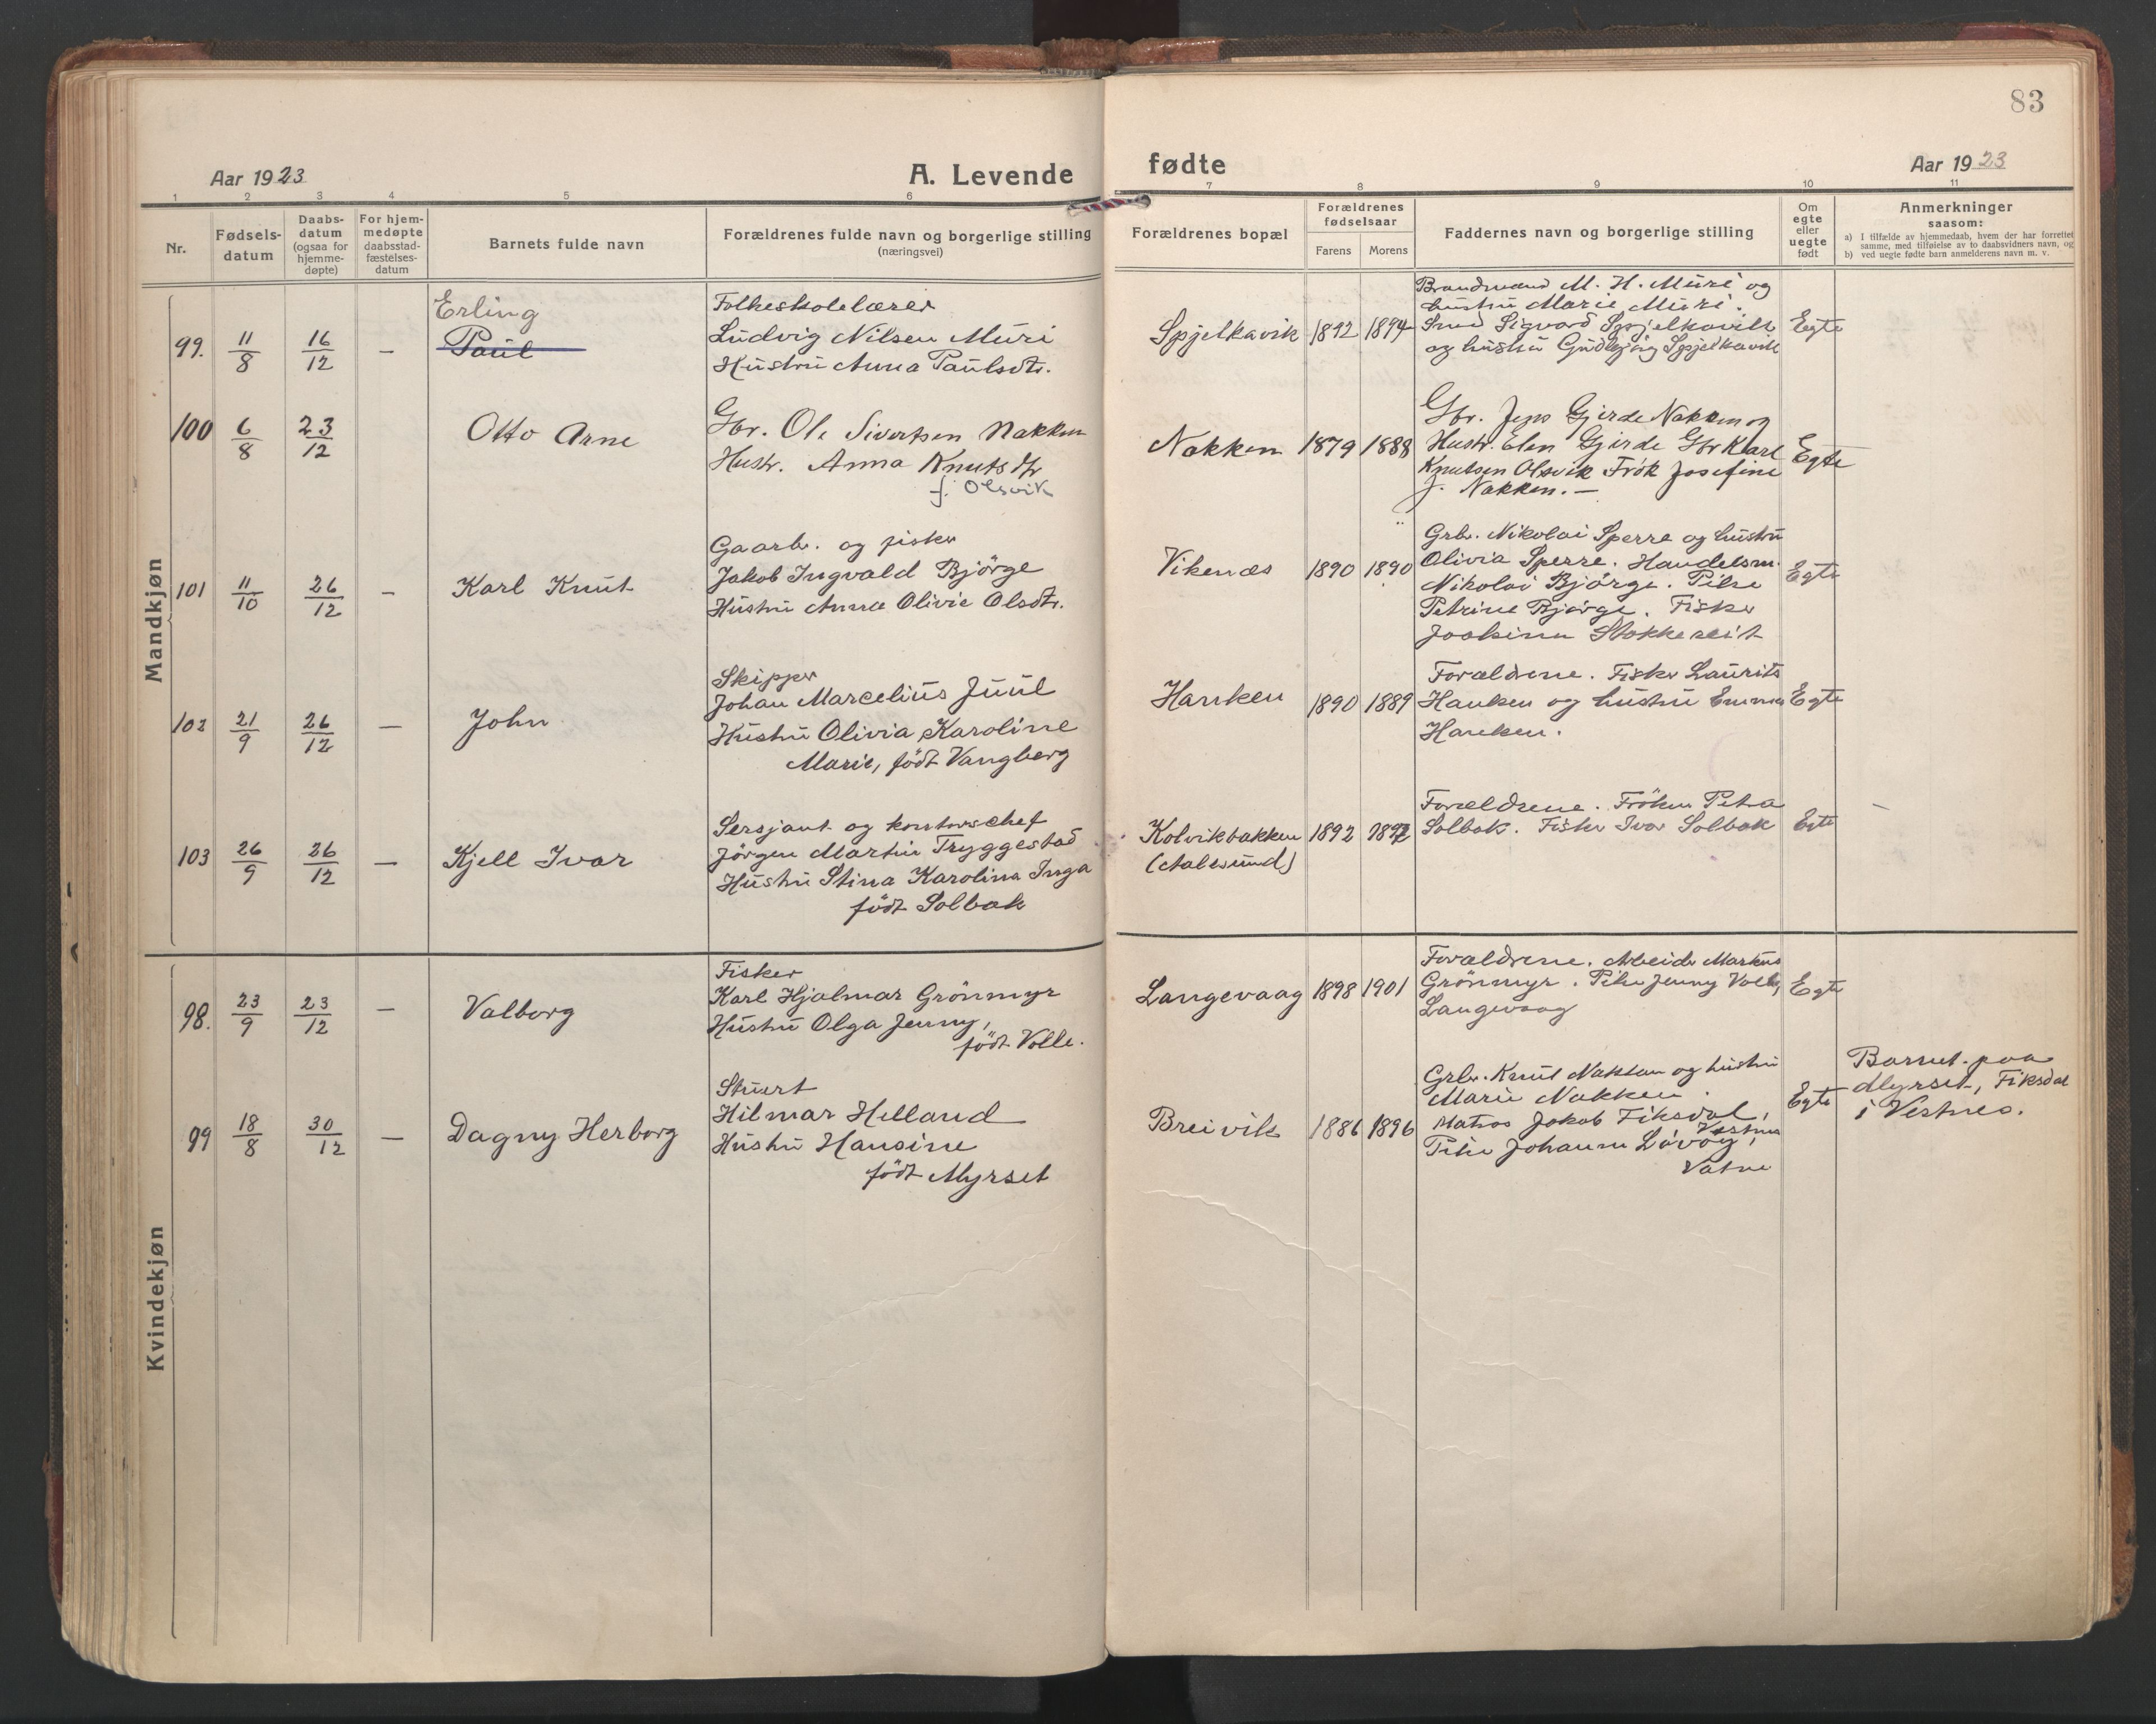 83
Aar 1923
A. Levende
fødte
Aar 1923
1 2 3 4 5 6 7 8 9 10 11
Nr.
Fødsels-
datum
Daabs-
datum
(ogsaa for
hjemme-
døpte)
For hjem-
medøpte
daabsstad-
fæstelses-
datum
Barnets fulde navn
Forældrenes fulde navn og borgerlige stilling
(næringsvei)
Forældrenes bopæl
Forældrenes
fødselsaar
Farens Morens
Faddernes navn og borgerlige stilling
Om
egte
eller
uegte
født
Anmerkninger
saasom:
a) I tilfælde av hjemmedaab, hvem der har forrettet
samme, med tilføielse av to daabsvidners navn, og
b) ved uegte fødte barn anmelderens navn m. v.
Mandkjøn
99. 11/8 16/12 —
Erling
Paul
Folkeskolelærer
Ludvig Nilsen Muri
Hustru Anna Paulsdtr.
Spjelkavik 1892 1894
Brandmand M. H. Muri og
hustru Marie Muri.
Smed Sigvard Spjelkavik
og hustru Gudbjørg Spjelkavik
Egte
100 6/8 23/12
Otto Arne
Gbr. Ole Sivertsen Nakken
Hustr. Anna Knutsdtr
f. Olsvik
Nakken 1879 1888
Gbr. Jeps Gjerde Nakken og
Hustr. Elen Gjerde Gbr Karl
Knutsen Olsvik Frøk Josefine
J. Nakken. —
Egte
101 11/10 26/12 —
Karl Knut
Gaarbr. og fisker
Jakob Ingvald Bjørge
Hustru Anna Olivie Olsdtr.
Vikenæs 1890 1890
Grbr. Nikolai Sperre og hustru
Olivia Sperre. Handelsm.
Nikolai Bjørge. Pike
Petrine Bjørge. Fisker
Joakim Stokkereit
Egte
102 21/9 26/12 —
John
Skipper
Johan Marcelius Juul
Hustru Olivia Karoline
Marie, født Vangberg
Hanken 1890 1889
Forældrene. Fisker Laurits
Hanken og hustru Emma
Hanken.
Egte
103 26/9 26/12 —
Kjell Ivar
Sersjant og kontorchef
Jørgen Martin Tryggestad
Hustru Stina Karolina Inga
født Solbak
Kolvikbakken 1892
(Aalesund)
Forældrene. Frøken Petra
Solbak. Fisker Ivar Solbak
Egte
Kvindekjøn
98. 23/9 23/12 —
Valborg
Fisker
Karl Hjalmar Grønmyr
Hustru Olga Jenny,
født Volle.
Langevaag 1898 1901
Forældrene. Arbeider Markus
Grønmyr. Pike Jenny Volle,
Langevaag
Egte
99 18/8 30/12 —
Dagny Herborg
Stuert
Hilmar Helland
Hustru Hansine
født Myrset
Breivik 1886 1896
Grbr. Knut Nakken og hustru
Marie Nakken.
Matros Jakob Fiksdal,
Vestnes
Pike Johanne Løvøy,
Vatne
Egte
Barnet paa
Myrset, Fiksdal
i Vestnes.